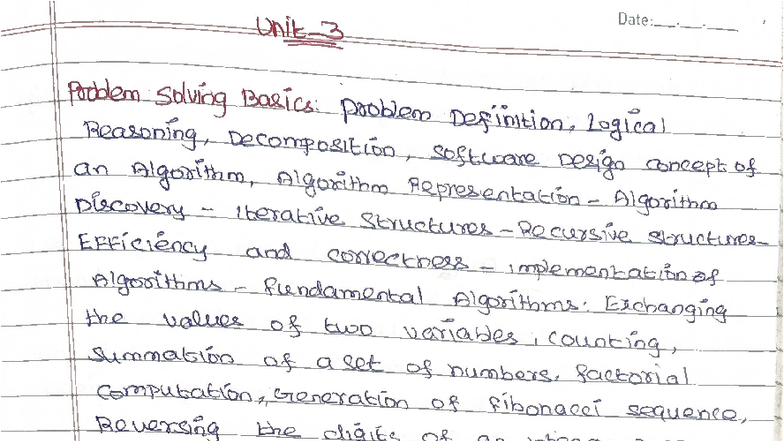 Date:
Unit-3
Problem Solving Basics: Problem Definition, Logical
Reasoning, Decomposition, software Design concept of
an Algorithm, Algorithm Representation - Algorithm
Discovery - Iterative Structures - Recursive structures-
Efficiency and correctness - implementation of
Algorithms - fundamental Algorithms. Exchanging
the values of two variables, counting,
summation of a set of numbers, factorial
computation, Generation of fibonacci sequence,
Reversing the digits of an